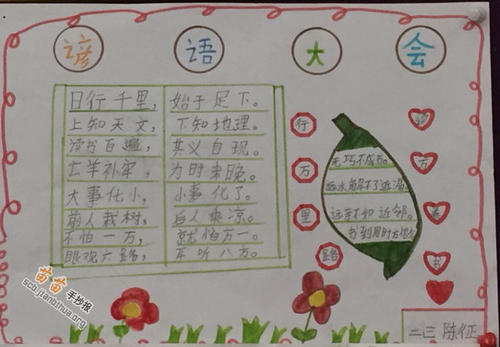 谚语大会
日行千里，始于足下。
上知天文，下知地理。
读书百遍，其义自现。
亡羊补牢，为时未晚。
大事化小，小事化了。
前人栽树，后人乘凉。
不怕一万，就怕万一。
眼观六路，耳听八方。
行
万
里
路
无巧不成书。
远水解不了近渴。
远亲不如近邻。
书到用时方恨少
万
书
二三 陈征
苗苗手抄报
scb.jianbihua.org